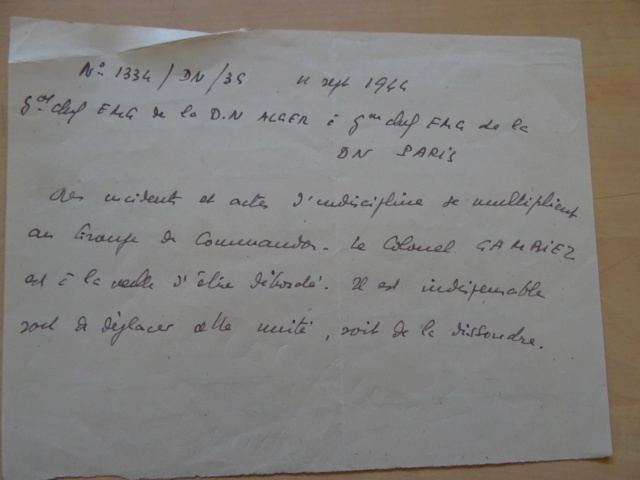 N° 1334/DN/3S 11 sept 1944
Gal chef EMG de la D.N ALGER à Gal chef EMG de la
DN PARIS
Les incidents et actes d'indiscipline se multiplient
au Groupe de Commandos. Le Colonel GAMBIEZ
est à la veille d'être débordé. Il est indispensable
soit de déplacer cette unité, soit de la dissoudre.